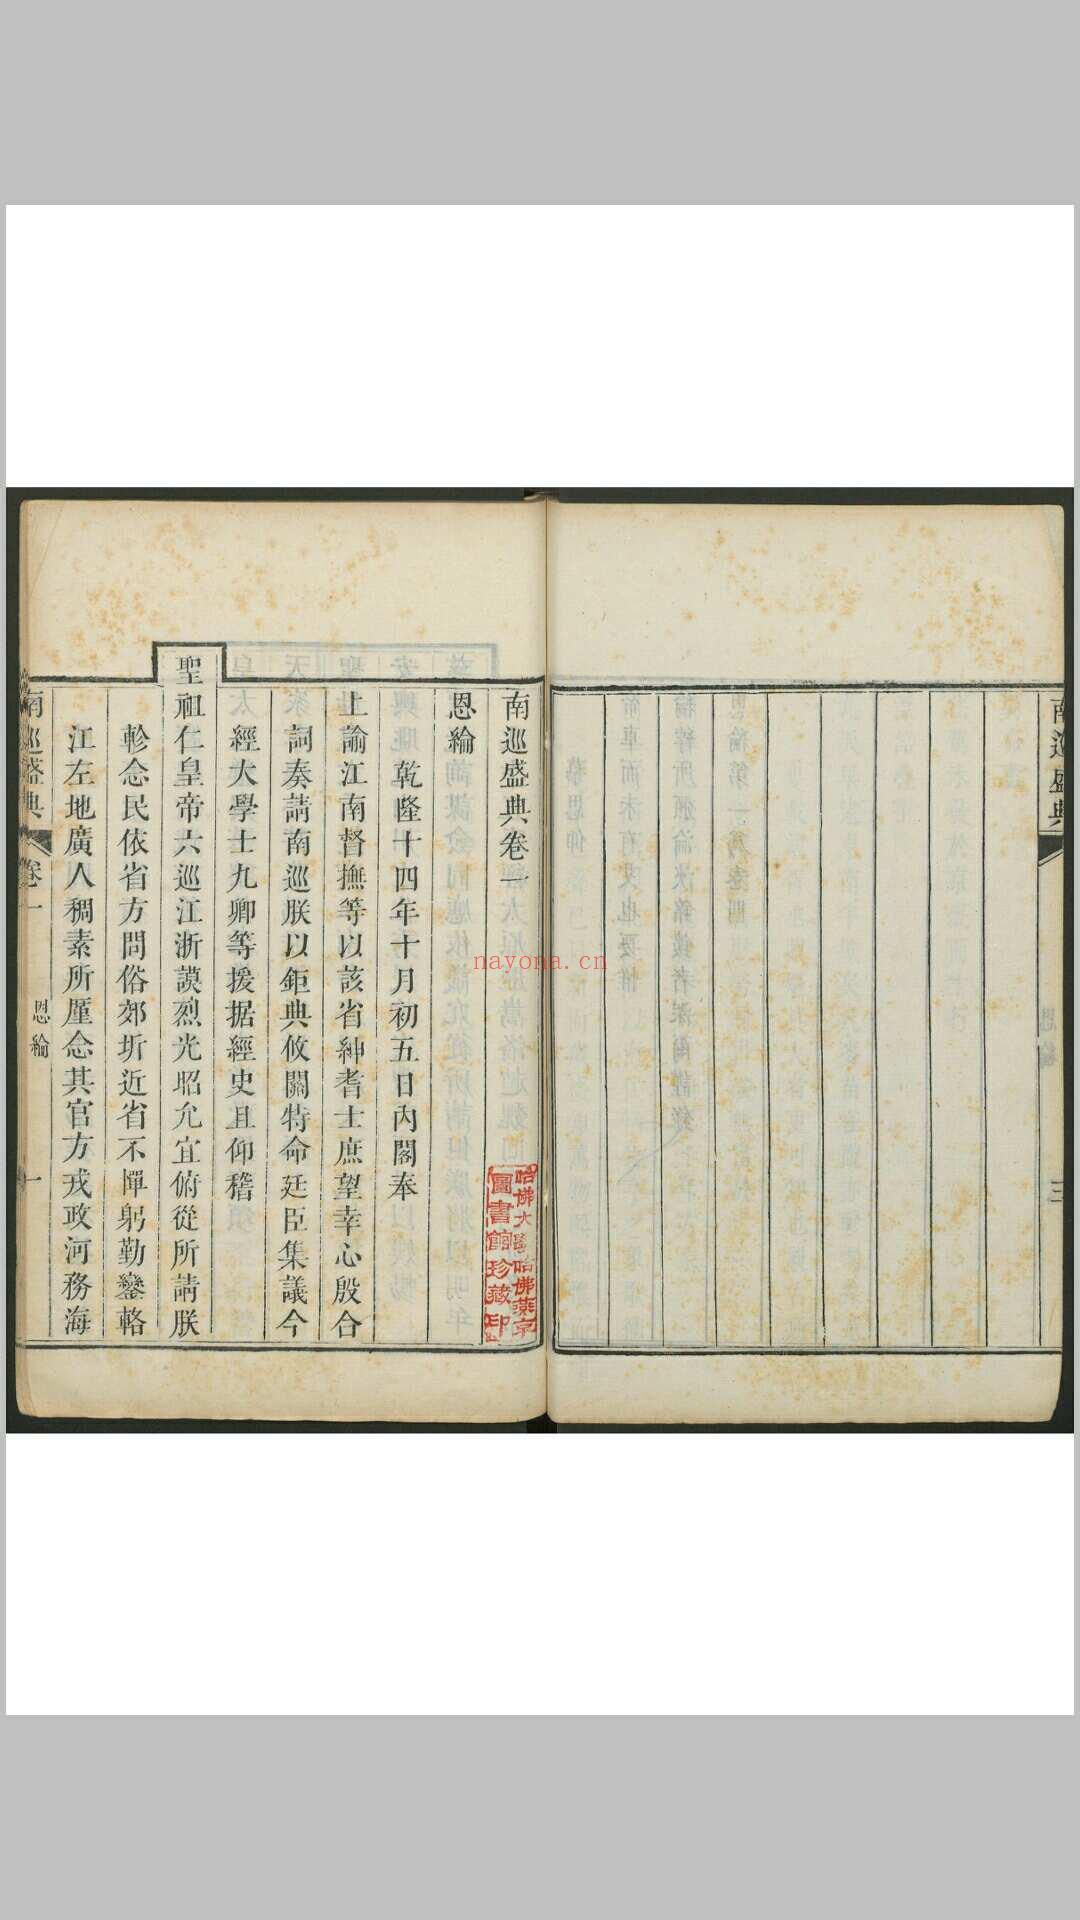 南巡盛典
三
南巡盛典卷一
恩綸
乾隆十四年十月初五日內閣奉
上諭江南督撫等以該省紳耆士庶望幸心殷合
詞奏請南巡朕以鉅典攸關特命廷臣集議今
經大學士九卿等援据經史且仰稽
聖祖仁皇帝六巡江浙謨烈光昭允宜俯從所請朕
軫念民依省方問俗郊圻近省不憚躬勤鑾輅
江左地廣人稠素所廑念其官方戎政河務海
南巡盛典
卷一
恩綸
一
哈佛大學哈佛燕京
圖書館珍藏印
nayona.cn